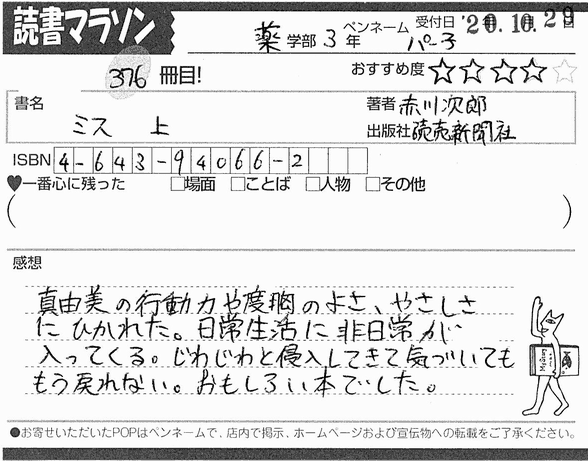 読書マラソン
薬学部3年 ペンネーム パー子 受付日 '20.10.29日
376冊目! おすすめ度☆☆☆☆☆
書名 ミス 上
著者 赤川次郎
出版社 読売新聞社
ISBN 4-643-94066-2
♥一番心に残った □場面 □ことば □人物 □その他
( )
感想
真由美の行動力や度胸のよさ、やさしさ
にひかれた。日常生活に非日常が
入ってくる。じわじわと侵入してきて気づいても
もう戻れない。おもしろい本でした。
●お寄せいただいたPOPはペンネームで、店内で掲示、ホームページおよび宣伝物への転載をご了承ください。